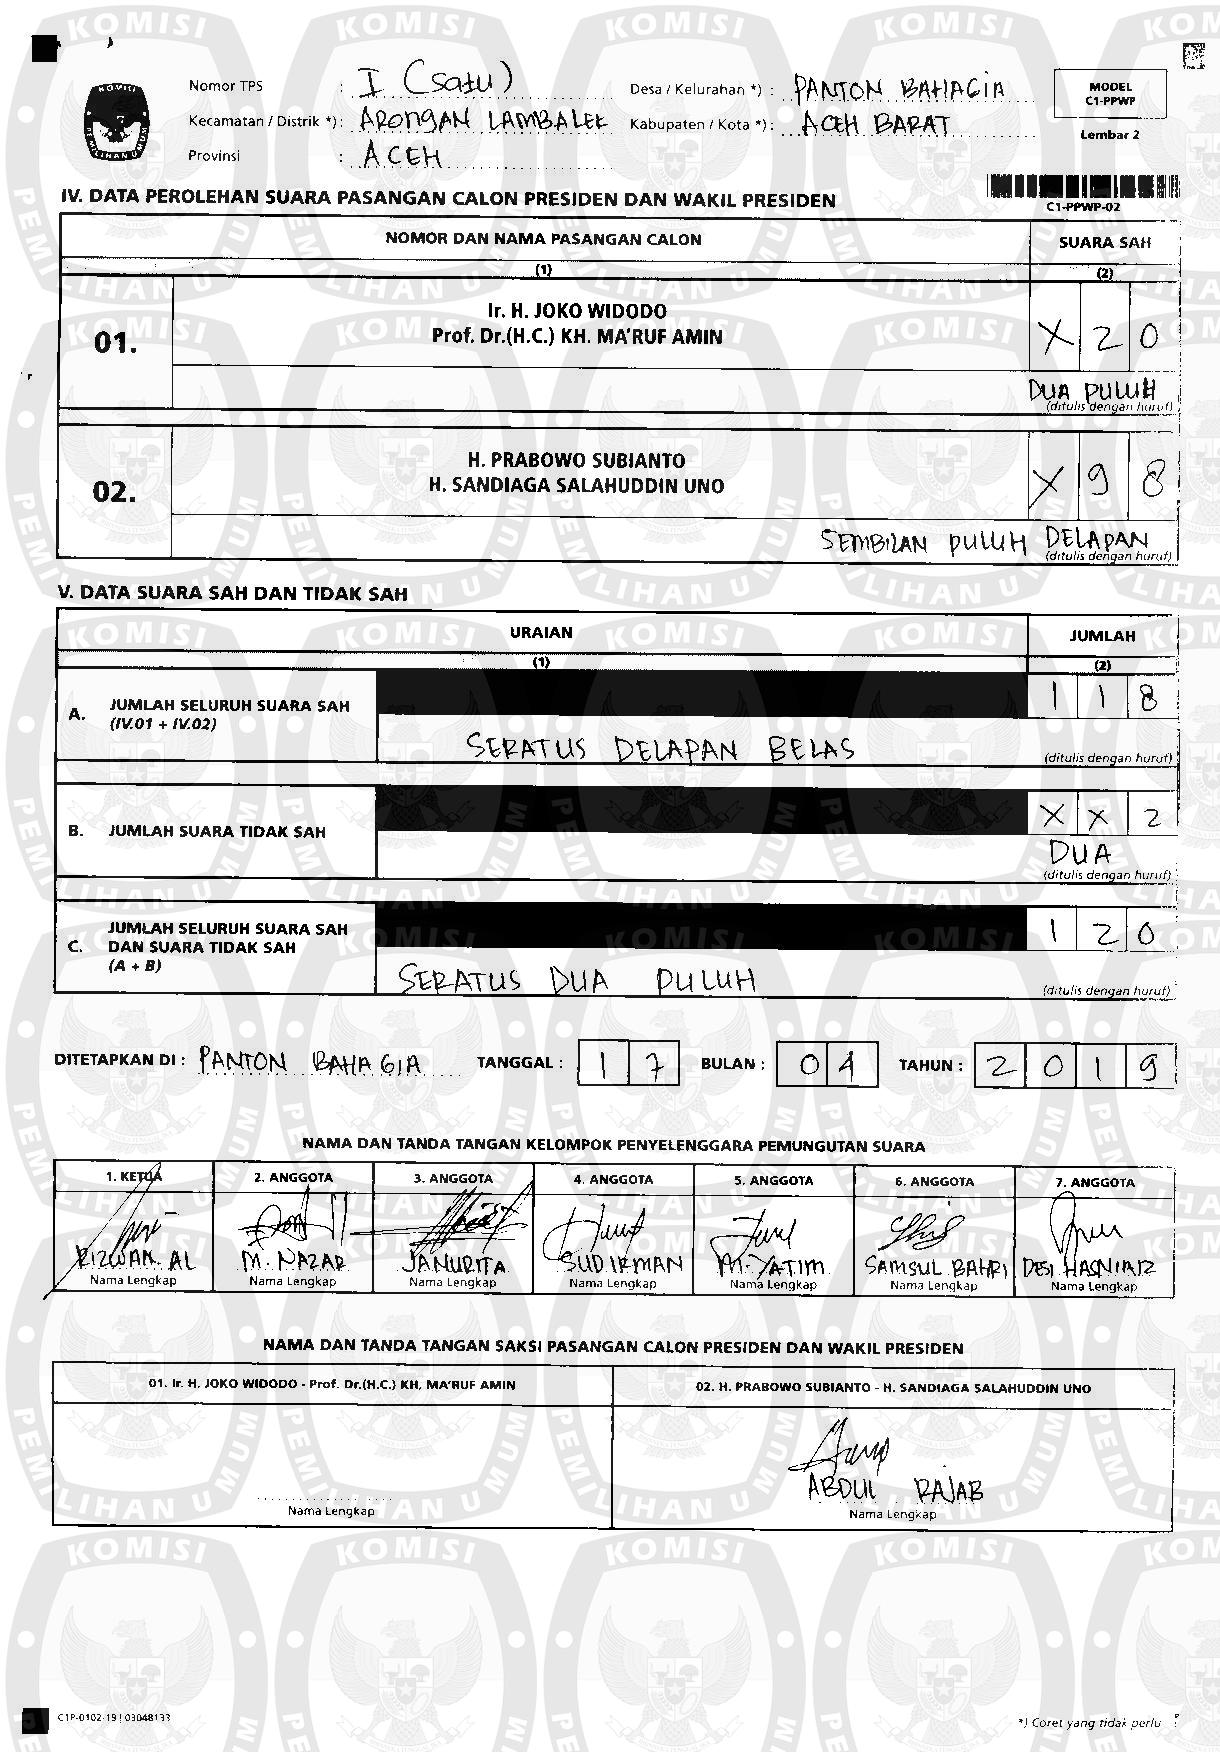 Nomor TPS : I (Satu)
Desa / Kelurahan *) : PANTON BAHAGIA
MODEL
C1-PPWP
Kecamatan / Distrik *) : ARONGAN LAMBALEK
Kabupaten / Kota *) : ACEH BARAT
Lembar 2
Provinsi : ACEH
IV. DATA PEROLEHAN SUARA PASANGAN CALON PRESIDEN DAN WAKIL PRESIDEN
C1-PPWP-02
NOMOR DAN NAMA PASANGAN CALON
SUARA SAH
(1)
(2)
01.
Ir. H. JOKO WIDODO
Prof. Dr.(H.C.) KH. MA'RUF AMIN
X 2 0
DUA PULUH
(ditulis dengan huruf)
02.
H. PRABOWO SUBIANTO
H. SANDIAGA SALAHUDDIN UNO
X 9 8
SEMBILAN PULUH DELAPAN
(ditulis dengan huruf)
V. DATA SUARA SAH DAN TIDAK SAH
URAIAN
JUMLAH
(1)
(2)
A. JUMLAH SELURUH SUARA SAH
(IV.01 + IV.02)
1 1 8
SERATUS DELAPAN BELAS
(ditulis dengan huruf)
B. JUMLAH SUARA TIDAK SAH
X X 2
DUA
(ditulis dengan huruf)
C. JUMLAH SELURUH SUARA SAH
DAN SUARA TIDAK SAH
(A + B)
1 2 0
SERATUS DUA PULUH
(ditulis dengan huruf)
DITETAPKAN DI : PANTON BAHAGIA TANGGAL : 1 7 BULAN : 0 4 TAHUN : 2 0 1 9
NAMA DAN TANDA TANGAN KELOMPOK PENYELENGGARA PEMUNGUTAN SUARA
1. KETUA 2. ANGGOTA 3. ANGGOTA 4. ANGGOTA 5. ANGGOTA 6. ANGGOTA 7. ANGGOTA
RIZWAN. AL M. NAZAR JANURITA SUDIRMAN M. YATIM SAMSUL BAHRI DESI HASNIAR
Nama Lengkap Nama Lengkap Nama Lengkap Nama Lengkap Nama Lengkap Nama Lengkap Nama Lengkap
NAMA DAN TANDA TANGAN SAKSI PASANGAN CALON PRESIDEN DAN WAKIL PRESIDEN
01. Ir. H. JOKO WIDODO - Prof. Dr.(H.C.) KH. MA'RUF AMIN
02. H. PRABOWO SUBIANTO - H. SANDIAGA SALAHUDDIN UNO
ABDUL RAJAB
Nama Lengkap
Nama Lengkap
C1P-0102-19 | 03048133
*) Coret yang tidak perlu